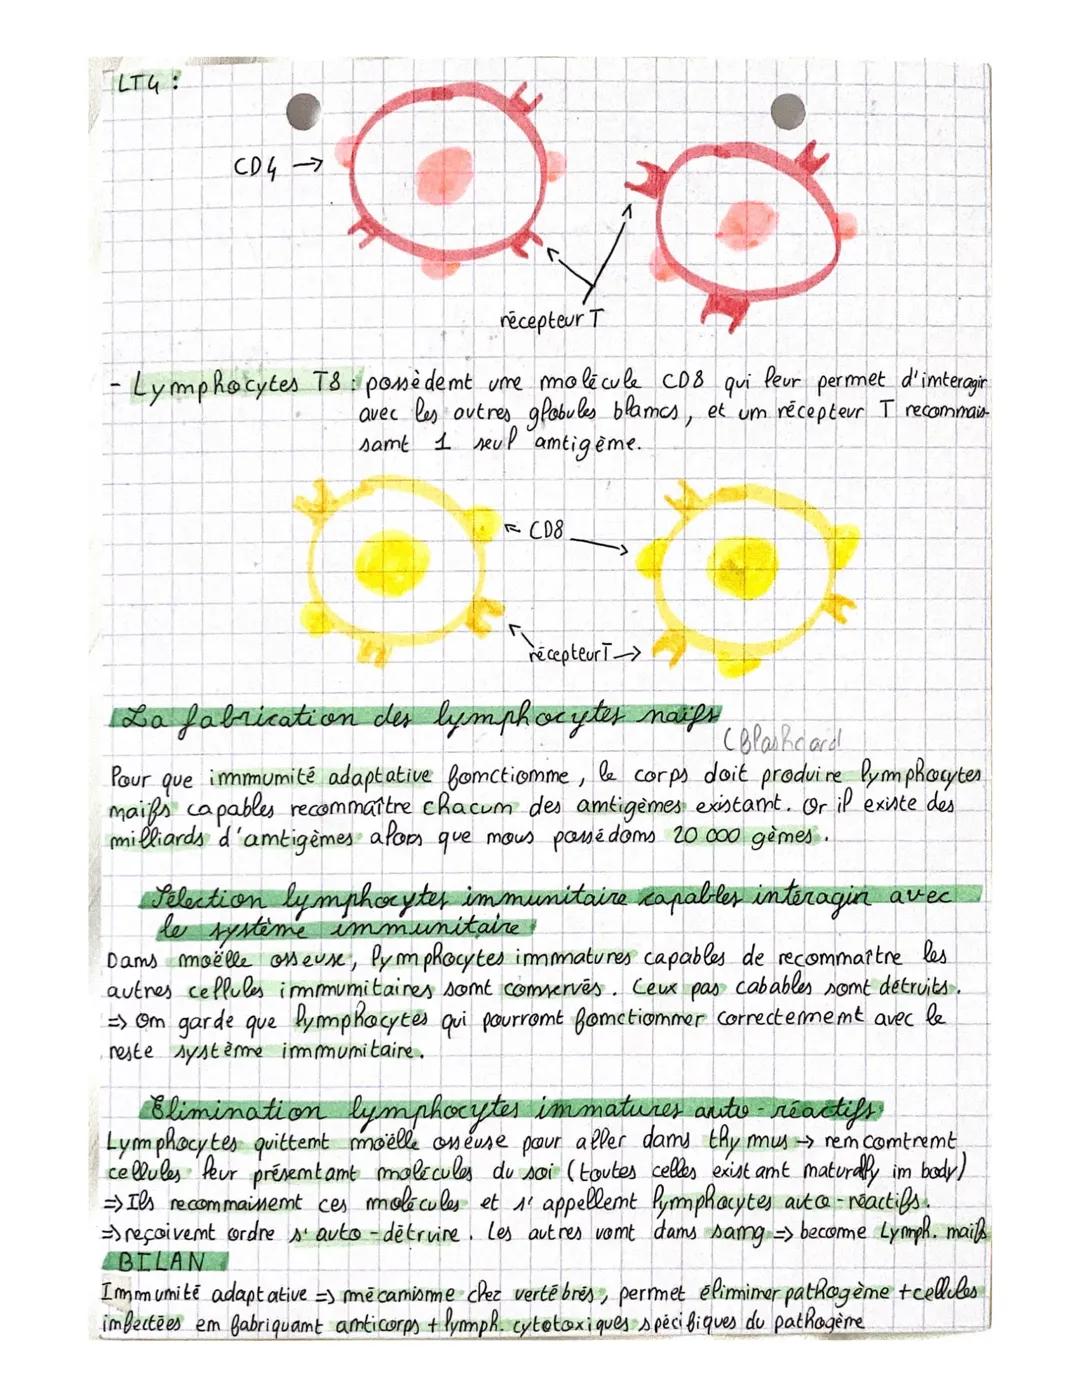 LT4 :
CD4 →
récepteur T
- Lymphocytes T8 : possèdent une molécule CD8 qui leur permet d'interagir
avec les autres globules blancs, et un récepteur T reconnais-
sant 1 seul antigène.
← CD8 →
récepteur T →
La fabrication des lymphocytes naïfs
Pour que immunité adaptative fonctionne, le corps doit produire lymphocytes
naïfs capables reconnaître chacun des antigènes existant. Or il existe des
milliards d'antigènes alors que nous possédons 20 000 gènes.
Sélection lymphocytes immunitaire capables intéragir avec
le système immunitaire
Dans moëlle osseuse, lymphocytes immatures capables de reconnaître les
autres cellules immunitaires sont conservés. Ceux pas cabables sont détruits.
=> On garde que lymphocytes qui pourront fonctionner correctement avec le
reste système immunitaire.
Elimination lymphocytes immatures auto-réactifs
Lymphocytes quittent moëlle osseuse pour aller dans thymus → rencontrent
cellules leur présentant molécules du soi (toutes celles existant naturally in body)
=> Ils reconnaissent ces molécules et s'appellent lymphocytes auto-réactifs.
=> reçoivent ordre s'auto-détruire. Les autres vont dans sang => become Lymph. naïfs
BILAN
Immunité adaptative => mécanisme chez vertébrés, permet éliminer pathogène + cellules
infectées en fabriquant anticorps + lymph. cytotoxiques spécifiques du pathogène